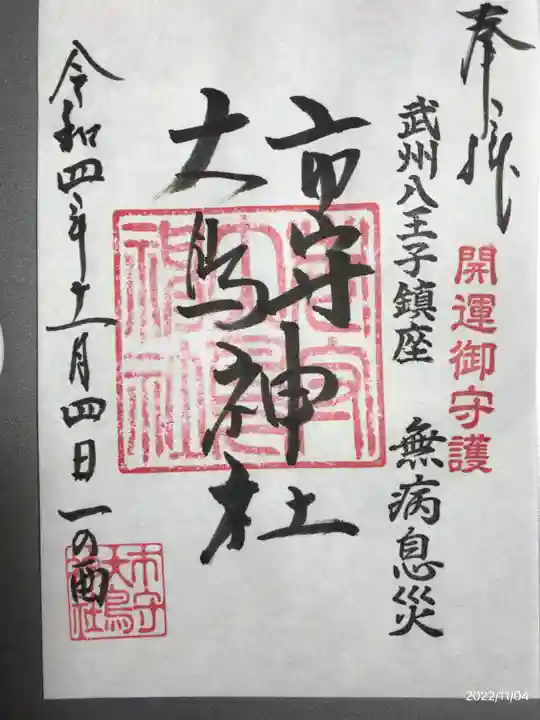 奉拝
開運御守護
武州八王子鎮座 無病息災
市守
大鳥神社
令和四年十一月四日 一の酉
市守
大鳥
2022/11/04